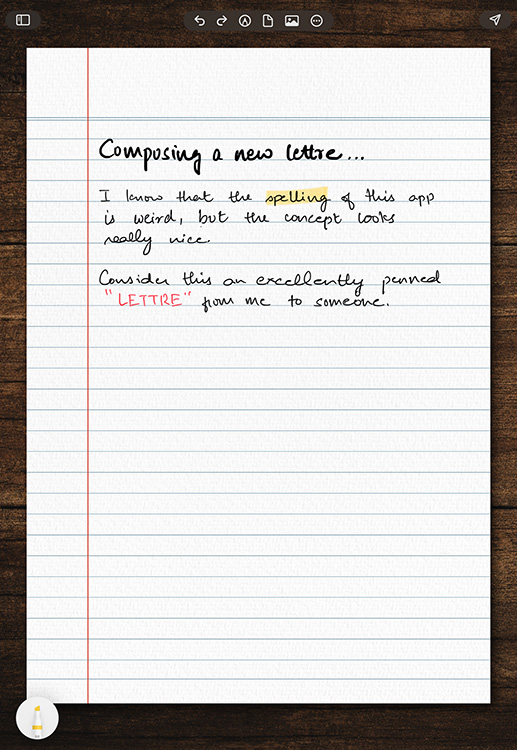 Composing a new lettre...
I know that the spelling of this app
is weird, but the concept looks
really nice.
Consider this an excellently penned
"LETTRE" from me to someone.